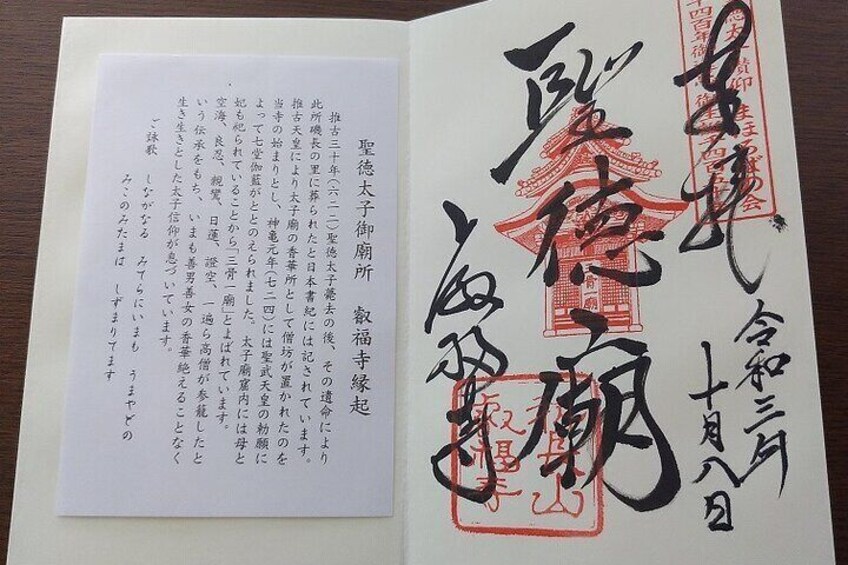 聖徳太子御廟所　叡福寺縁起
推古三十年(六二二)聖徳太子薨去の後、その遺命により
此所磯長の里に葬られたと日本書紀には記されています。
推古天皇により太子廟の香華所として僧坊が置かれたのを
当寺の始まりとし、神亀元年(七二四)には聖武天皇の勅願に
よって七堂伽藍がととのえられました。太子廟窟内には母と
妃も祀られていることから「三骨一廟」とよばれています。
空海、良忍、親鸞、日蓮、證空、一遍ら高僧が参籠したと
いう伝承をもち、いまも善男善女の香華絶えることなく
生き生きとした太子信仰が息づいています。
ご詠歌　しながなる　みてらにいまも　うまやどの
みこのみたまは　しずまりてます
奉拝
令和三年
十月八日
聖徳廟
三骨一廟
叡福寺
磯長山
叡福寺